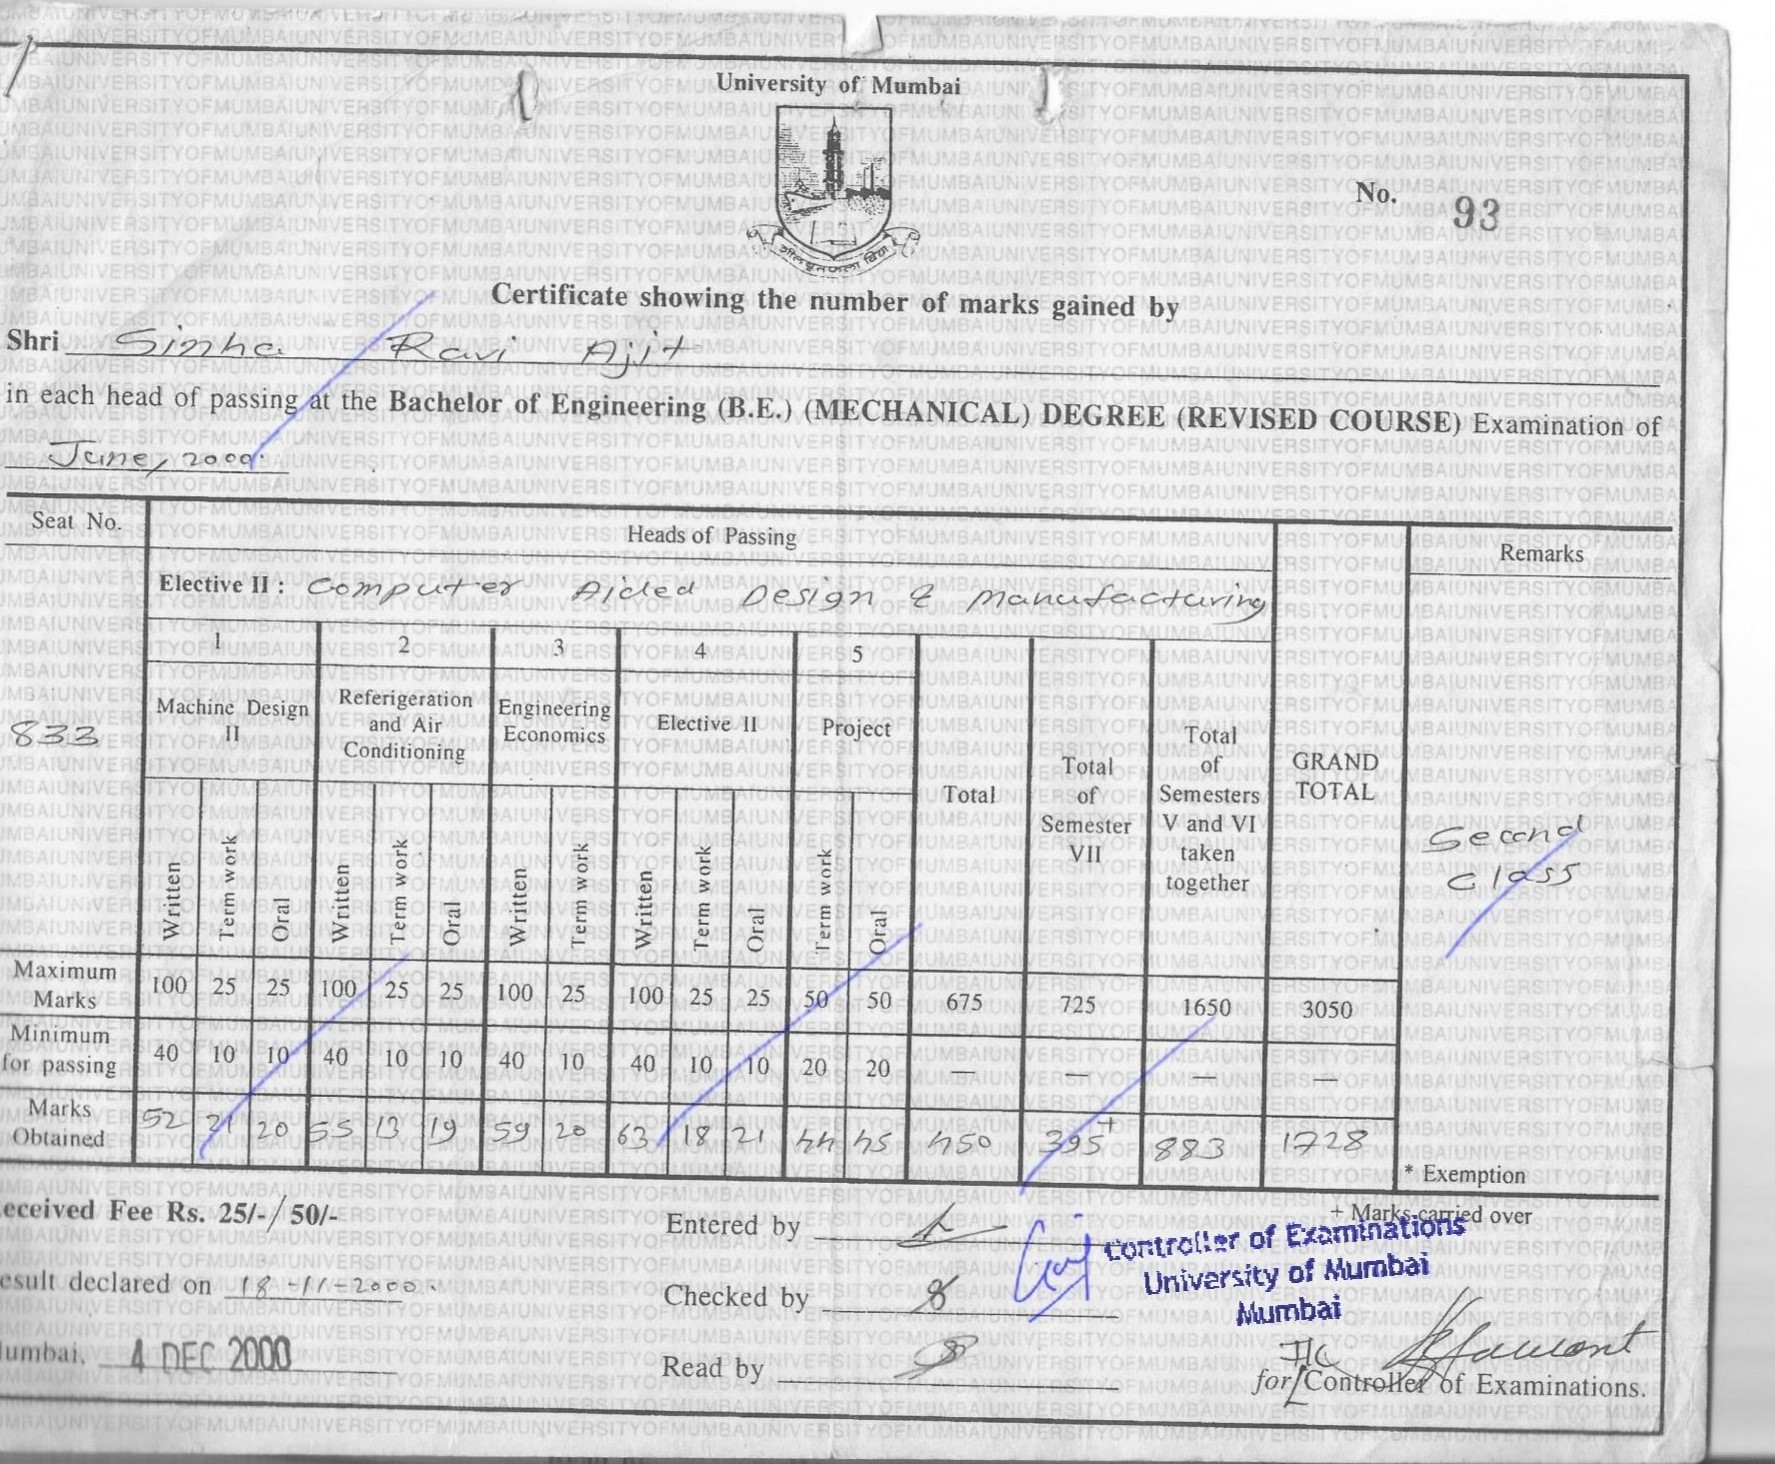 University of Mumbai
No. 93
Certificate showing the number of marks gained by
Shri Sinha Ravi Ajit
in each head of passing at the Bachelor of Engineering (B.E.) (MECHANICAL) DEGREE (REVISED COURSE) Examination of
June, 2000.
Seat No. Heads of Passing Remarks
Elective II : Computer Aided Design & Manufacturing
1 2 3 4 5
Machine Design II Referigeration and Air Conditioning Engineering Economics Elective II Project Total Total of Semester VII Total of Semesters V and VI taken together GRAND TOTAL
833
Second Class
Written Term work Oral Written Term work Oral Written Term work Written Term work Oral Term work Oral
Maximum Marks 100 25 25 100 25 25 100 25 100 25 25 50 50 675 725 1650 3050
Minimum for passing 40 10 10 40 10 10 40 10 40 10 10 20 20 — — — —
Marks Obtained 52 21 20 55 13 19 59 20 63 18 21 44 45 450 395+ 883 1728
* Exemption
+ Marks carried over
eceived Fee Rs. 25/-/ 50/-
Entered by
Controller of Examinations
University of Mumbai
Mumbai
esult declared on 18-11-2000.
Checked by
umbai, 4 DEC 2000
Read by
I/C
for Controller of Examinations.